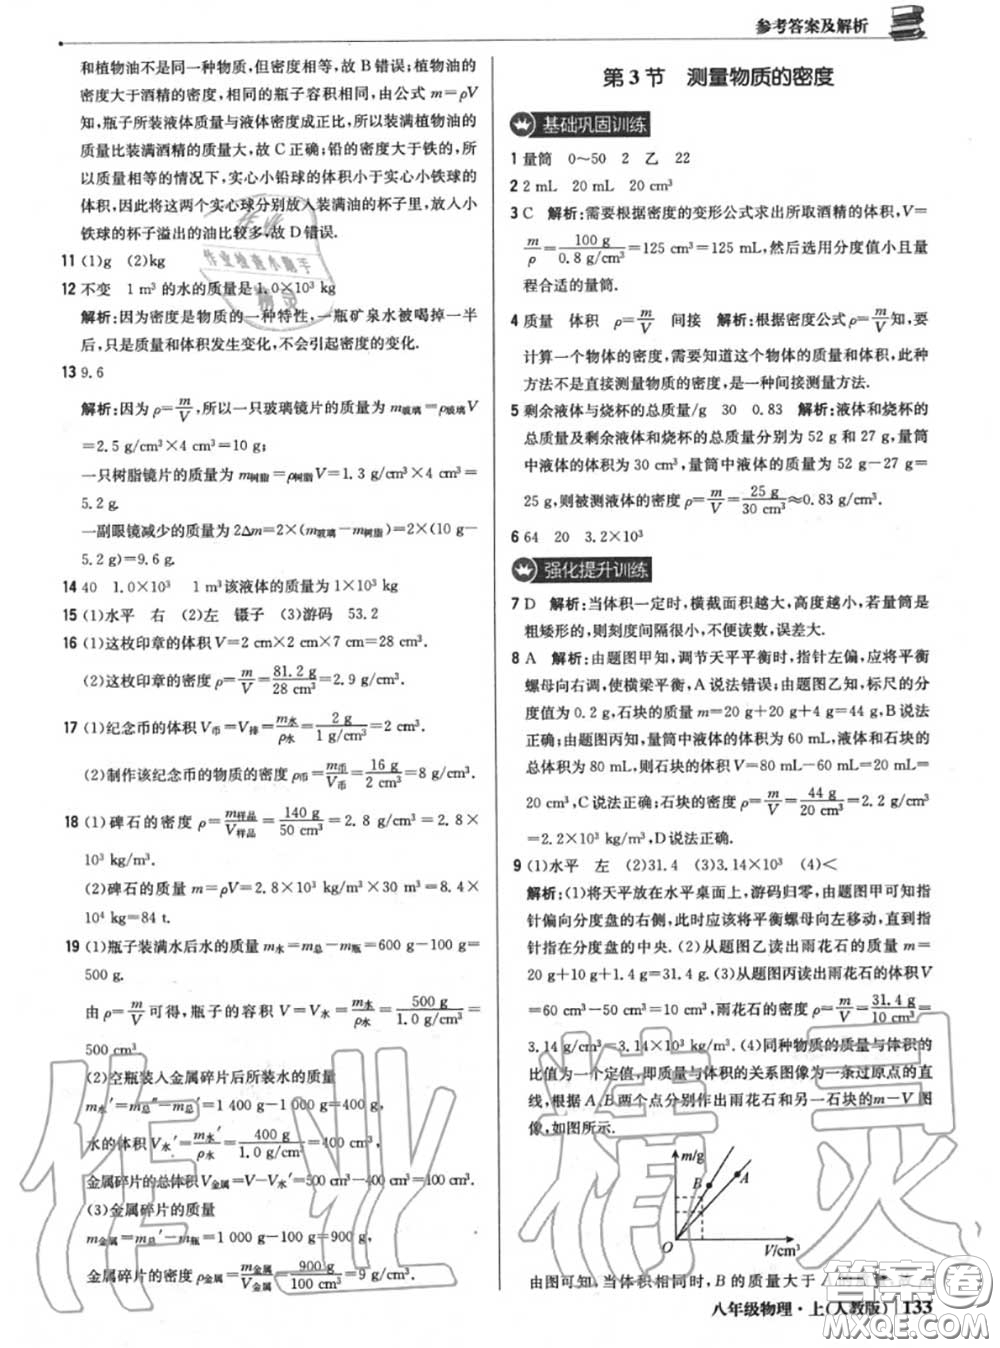 参考答案及解析
和植物油不是同一种物质,但密度相等,故B错误;植物油的
密度大于酒精的密度,相同的瓶子容积相同,由公式 m=ρV
知,瓶子所装液体质量与液体密度成正比,所以装满植物油的
质量比装满酒精的质量大,故C正确;铅的密度大于铁的,所
以质量相等的情况下,实心小铅球的体积小于实心小铁球的
体积,因此将这两个实心球分别放入装满油的杯子里,放入小
铁球的杯子溢出的油比较多,故D错误.
11 (1)g (2)kg
12 不变 1 m³的水的质量是1.0×10³ kg
解析:因为密度是物质的一种特性,一瓶矿泉水被喝掉一半
后,只是质量和体积发生变化,不会引起密度的变化.
13 9.6
解析:因为 ρ=m/V,所以一只玻璃镜片的质量为 m玻璃=ρ玻璃V
=2.5 g/cm³×4 cm³=10 g;
一只树脂镜片的质量为 m树脂=ρ树脂V=1.3 g/cm³×4 cm³=
5.2 g.
一副眼镜减少的质量为 2Δm=2×(m玻璃-m树脂)=2×(10 g-
5.2 g)=9.6 g.
14 40 1.0×10³ 1 m³该液体的质量为1×10³ kg
15 (1)水平 右 (2)左 镊子 (3)游码 53.2
16 (1)这枚印章的体积V=2 cm×2 cm×7 cm=28 cm³.
(2)这枚印章的密度 ρ=m/V=81.2 g/28 cm³=2.9 g/cm³.
17 (1)纪念币的体积V币=V排=m水/ρ水=2 g/1 g/cm³=2 cm³.
(2)制作该纪念币的物质的密度 ρ币=m币/V币=16 g/2 cm³=8 g/cm³.
18 (1)碑石的密度 ρ=m样品/V样品=140 g/50 cm³=2.8 g/cm³=2.8×
10³ kg/m³.
(2)碑石的质量 m=ρV=2.8×10³ kg/m³×30 m³=8.4×
10⁴ kg=84 t.
19 (1)瓶子装满水后水的质量 m水=m总-m瓶=600 g-100 g=
500 g.
由 ρ=m/V可得,瓶子的容积 V=V水=m水/ρ水=500 g/1.0 g/cm³=
500 cm³.
(2)空瓶装入金属碎片后所装水的质量
m水′=m总″-m总′=1 400 g-1 000 g=400 g,
水的体积V水′=m水′/ρ水=400 g/1.0 g/cm³=400 cm³,
金属碎片的总体积V金属=V-V水′=500 cm³-400 cm³=100 cm³.
(3)金属碎片的质量
m金属=m总′-m瓶=1 000 g-100 g=900 g,
金属碎片的密度 ρ金属=m金属/V金属=900 g/100 cm³=9 g/cm³.
第3节 测量物质的密度
基础巩固训练
1 量筒 0～50 2 乙 22
2 2 mL 20 mL 20 cm³
3 C 解析:需要根据密度的变形公式求出所取酒精的体积,V=
m/ρ=100 g/0.8 g/cm³=125 cm³=125 mL,然后选用分度值小且量
程合适的量筒.
4 质量 体积 ρ=m/V 间接 解析:根据密度公式ρ=m/V知,要
计算一个物体的密度,需要知道这个物体的质量和体积,此种
方法不是直接测量物质的密度,是一种间接测量方法.
5 剩余液体与烧杯的总质量/g 30 0.83 解析:液体和烧杯的
总质量及剩余液体和烧杯的总质量分别为52 g和27 g,量筒
中液体的体积为30 cm³,量筒中液体的质量为52 g-27 g=
25 g,则被测液体的密度 ρ=m/V=25 g/30 cm³≈0.83 g/cm³.
6 64 20 3.2×10³
强化提升训练
7 D 解析:当体积一定时,横截面积越大,高度越小,若量筒是
粗矮形的,则刻度间隔很小,不便读数,误差大.
8 A 解析:由题图甲知,调节天平平衡时,指针左偏,应将平衡
螺母向右调,使横梁平衡,A说法错误;由题图乙知,标尺的分
度值为0.2 g,石块的质量 m=20 g+20 g+4 g=44 g,B说法
正确;由题图丙知,量筒中液体的体积为60 mL,液体和石块的
总体积为80 mL,则石块的体积V=80 mL-60 mL=20 mL=
20 cm³,C说法正确;石块的密度 ρ=m/V=44 g/20 cm³=2.2 g/cm³
=2.2×10³ kg/m³,D说法正确.
9 (1)水平 左 (2)31.4 (3)3.14×10³ (4)<
解析:(1)将天平放在水平桌面上,游码归零,由题图甲可知指
针偏向分度盘的右侧,此时应该将平衡螺母向左移动,直到指
针指在分度盘的中央.(2)从题图乙读出雨花石的质量 m=
20 g+10 g+1.4 g=31.4 g.(3)从题图丙读出雨花石的体积V
=60 cm³-50 cm³=10 cm³,雨花石的密度 ρ=m/V=31.4 g/10 cm³=
3.14 g/cm³=3.14×10³ kg/m³.(4)同种物质的质量与体积的
比值为一个定值,即质量与体积的关系图像为一条过原点的直
线,根据A、B两个点分别作出雨花石和另一石块的m-V图
像,如图所示.
m/g
B A
O V/cm³
由图可知,当体积相同时,B的质量大于A
八年级物理·上(人教版) 133
作业
作业检查小助手
精灵
作业精灵
答案卷